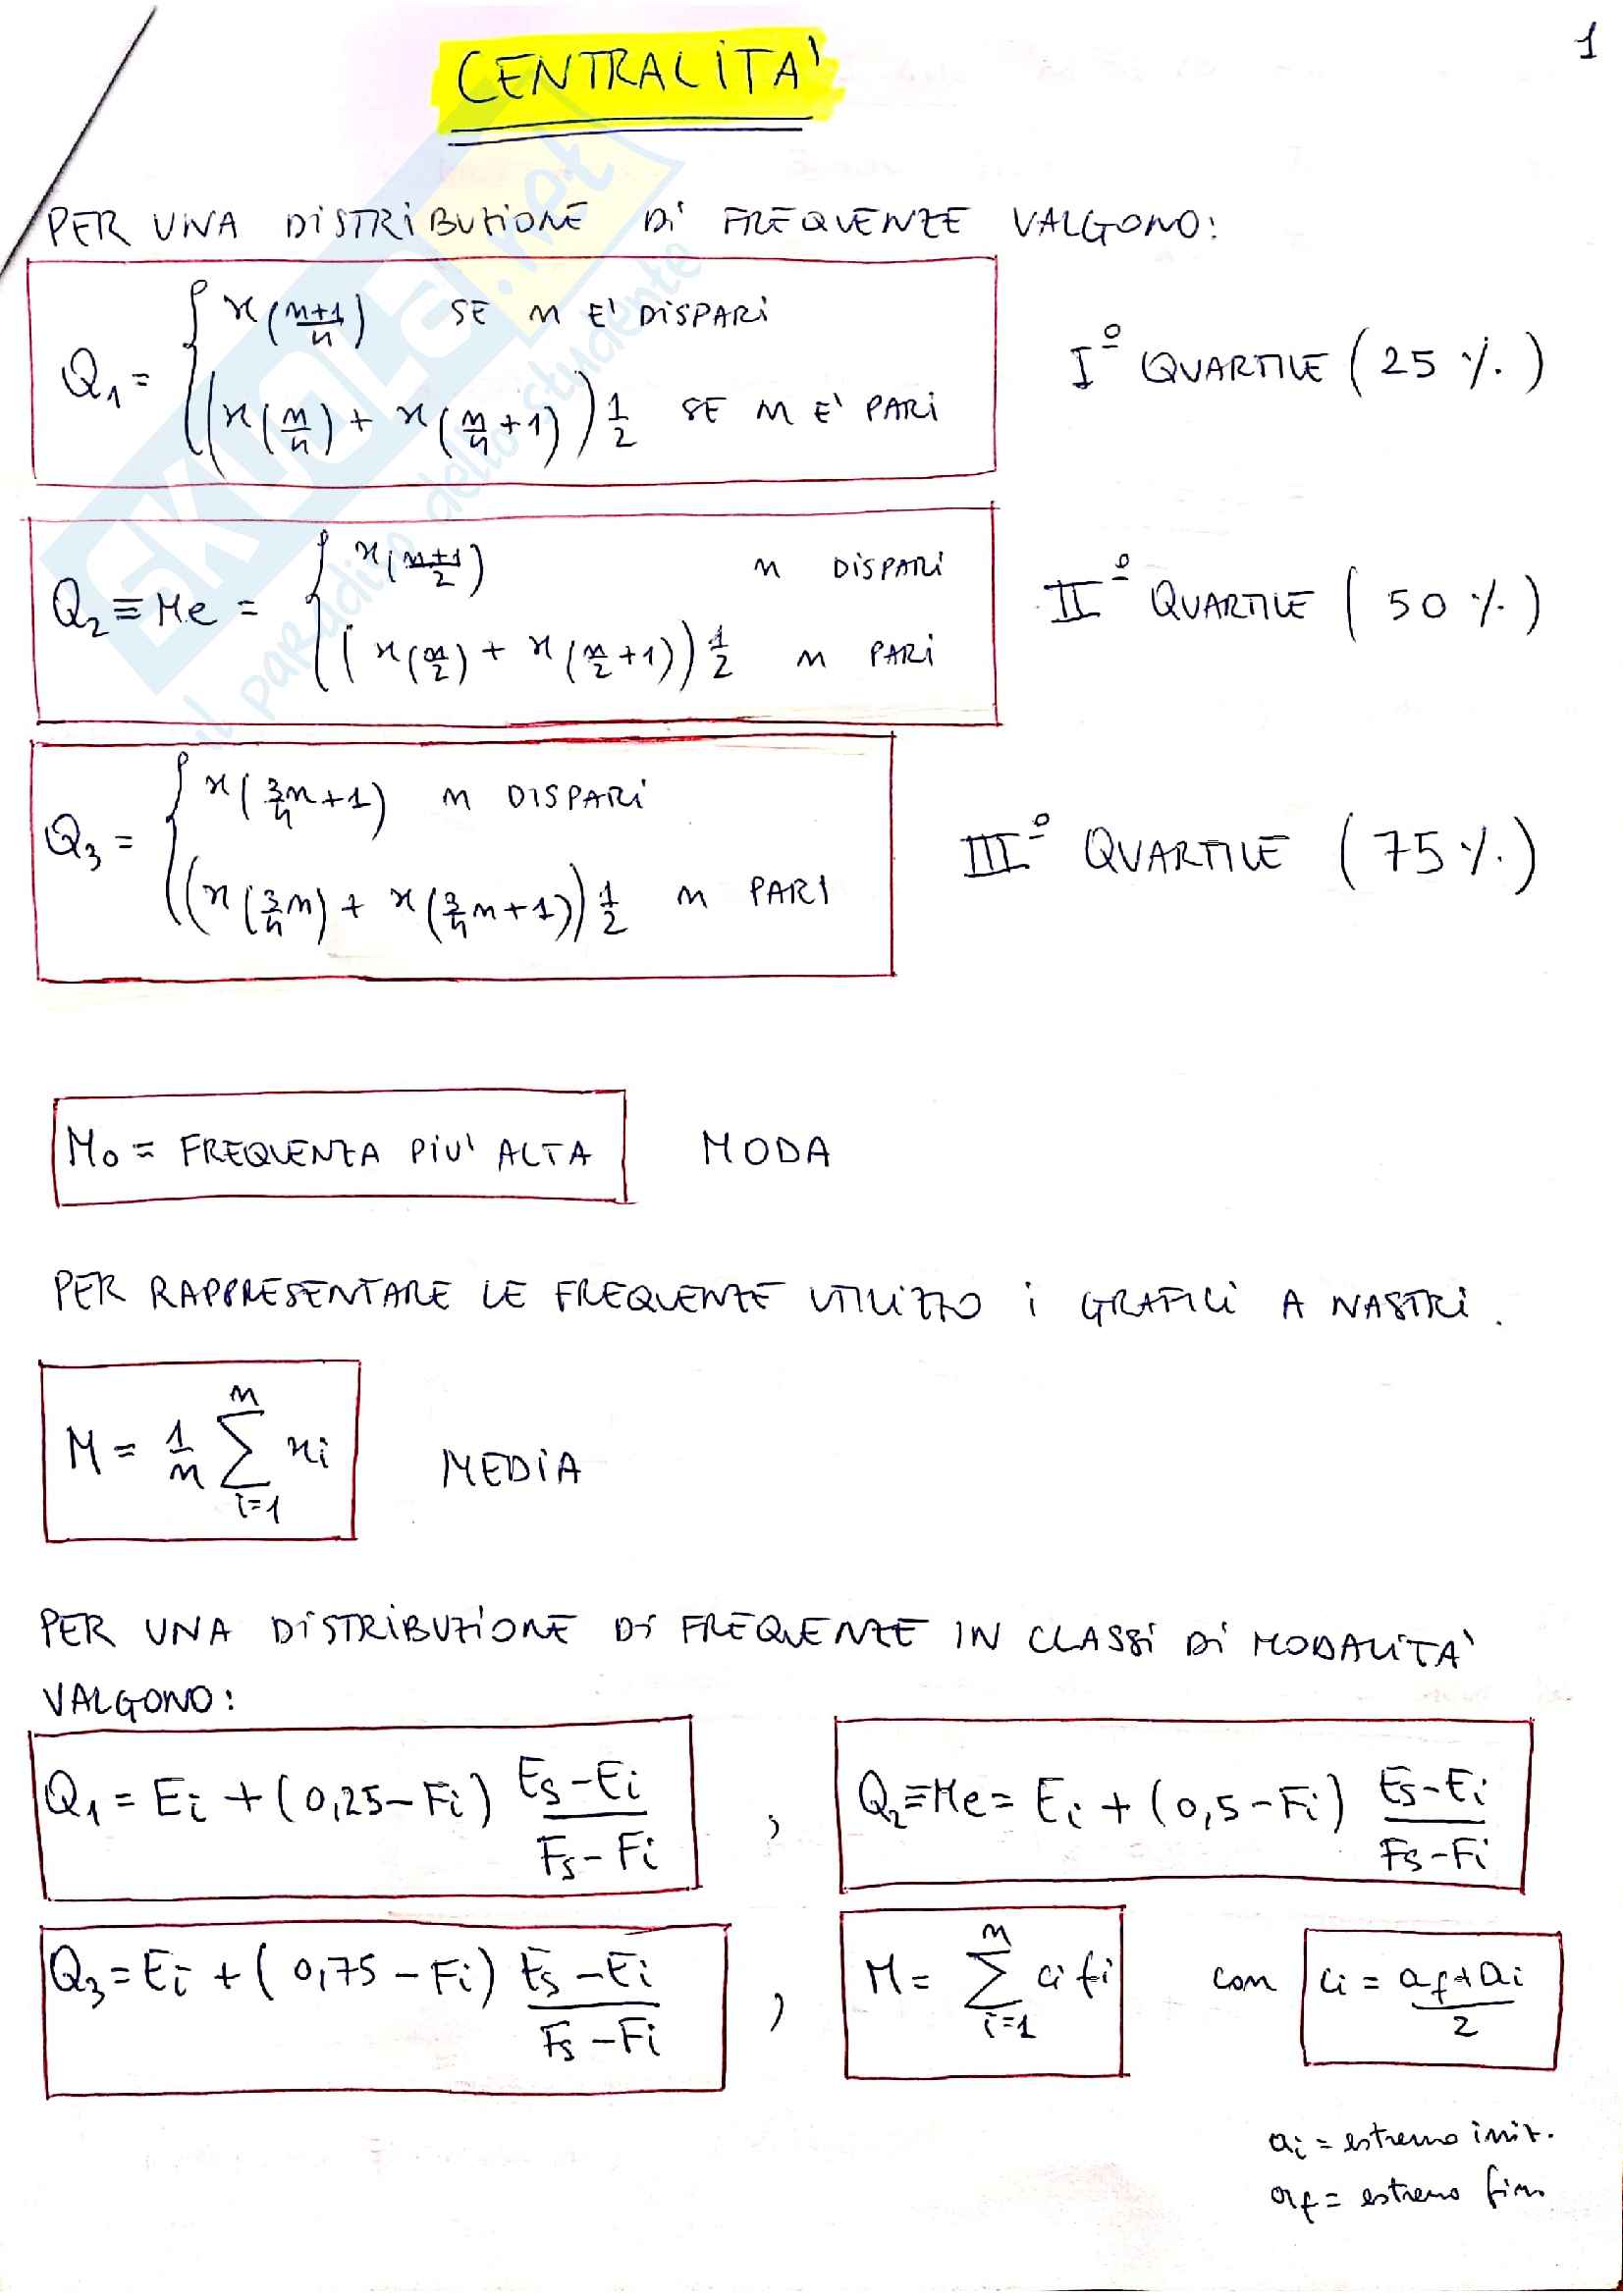 1
CENTRALITA'
PER UNA DISTRIBUZIONE DI FREQUENZE VALGONO:
Q₁ = { x((n+1)/4) SE n E' DISPARI
((x(n/4) + x(n/4 + 1)) 1/2 SE n E' PARI
I° QUARTILE (25 %)
Q₂ ≡ Me = { x((n+1)/2) n DISPARI
(x(n/2) + x(n/2 + 1)) 1/2 n PARI
II° QUARTILE (50 %)
Q₃ = { x(3/4 n + 1) n DISPARI
(x(3/4 n) + x(3/4 n + 1)) 1/2 n PARI
III° QUARTILE (75 %)
Mo = FREQUENZA PIU' ALTA MODA
PER RAPPRESENTARE LE FREQUENZE UTILIZZO I GRAFICI A NASTRI.
M = 1/n ∑ᵢ₌₁ⁿ xi MEDIA
PER UNA DISTRIBUZIONE DI FREQUENZE IN CLASSI DI MODALITA'
VALGONO:
Q₁ = Ei + (0,25 - Fi) (Es - Ei)/(Fs - Fi) , Q₂ ≡ Me = Ei + (0,5 - Fi) (Es - Ei)/(Fs - Fi)
Q₃ = Ei + (0,75 - Fi) (Es - Ei)/(Fs - Fi) , M = ∑ᵢ₌₁ⁿ ci fi con ci = (af + ai)/2
ai = estremo iniz.
af = estremo fin.
SKUOLA.net
il paradiso dello studente